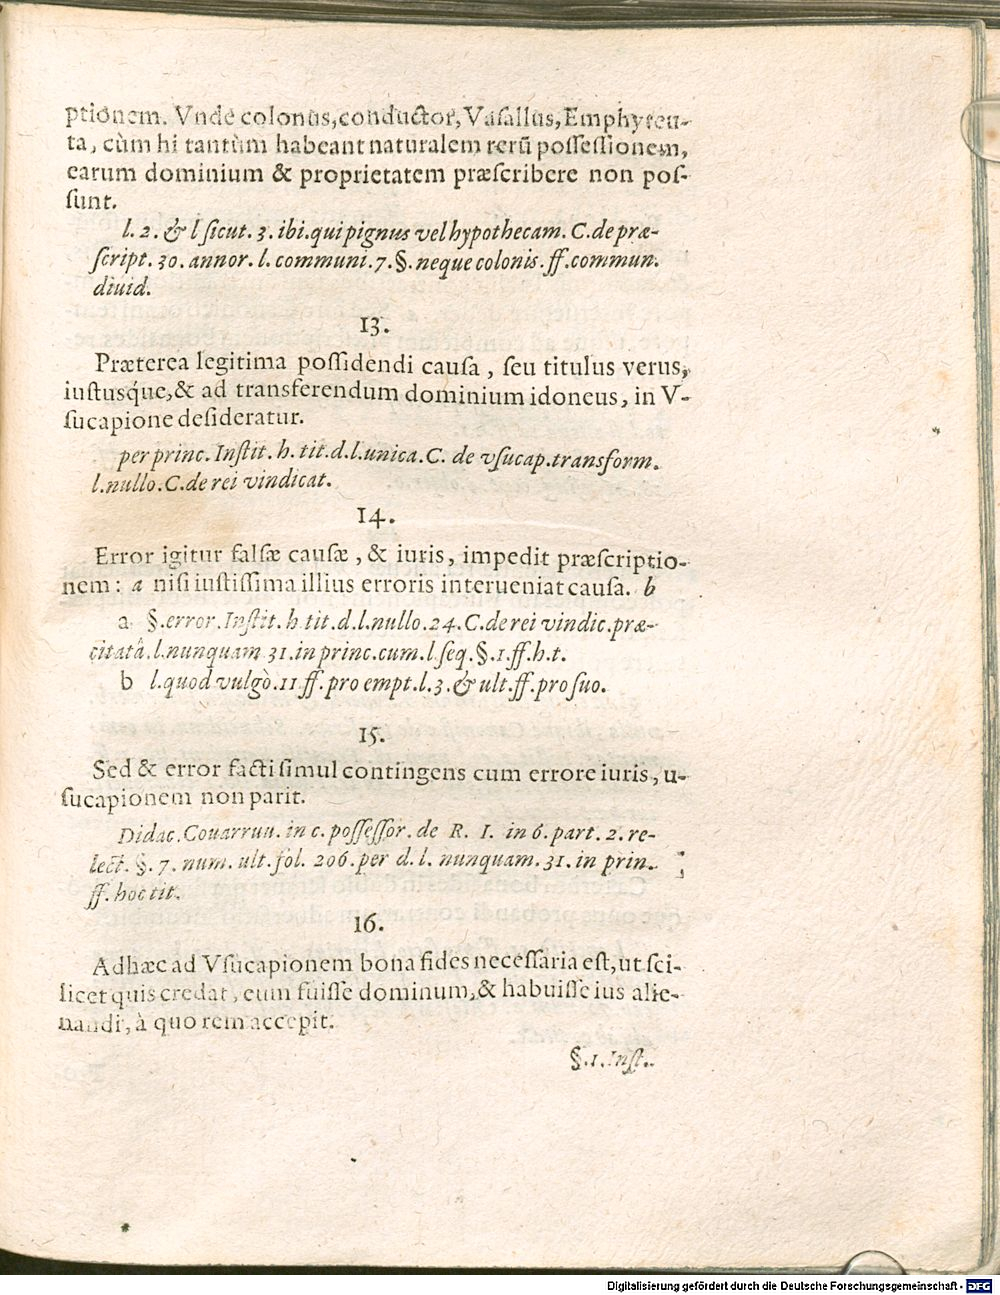 ptionem. Vnde colonus, conductor, Vasallus, Emphyteu-
ta, cùm hi tantùm habeant naturalem rerũ possessionem,
earum dominium & proprietatem præscribere non pos-
sunt.
l. 2. & l sicut. 3. ibi. qui pignus vel hypothecam. C. de præ-
script. 30. annor. l. communi. 7. §. neque colonis. ff. commun.
diuid.
13.
Præterea legitima possidendi causa, seu titulus verus,
iustusq́ue, & ad transferendum dominium idoneus, in V-
sucapione desideratur.
per princ. Instit. h. tit. d. l. unica. C. de vsucap. transform.
l. nullo. C. de rei vindicat.
14.
Error igitur falsæ causæ, & iuris, impedit præscriptio-
nem: a nisi iustissima illius erroris interueniat causa. b
a §. error. Instit. h tit. d. l. nullo. 24. C. de rei vindic. præ-
citatâ. l. nunquam 31. in princ. cum. l seq. §. 1. ff. h. t.
b l. quod vulgò. 11 ff. pro empt. l. 3. & ult. ff. pro suo.
15.
Sed & error facti simul contingens cum errore iuris, u-
sucapionem non parit.
Didac. Couarruu. in c. possessor. de R. I. in 6. part. 2. re-
lect. §. 7. num. ult. fol. 206. per d. l. nunquam. 31. in prin.
ff. hoc tit.
16.
Adhæc ad Vsucapionem bona fides necessaria est, ut sci-
licet quis credat, eum fuisse dominum, & habuisse ius alie-
nandi, à quo rem accepit.
§. 1. Inst.
Digitalisierung gefördert durch die Deutsche Forschungsgemeinschaft - DFG